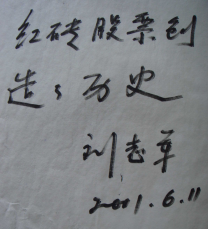 红砖股票创
造了历史
刘志军
2001.6.11